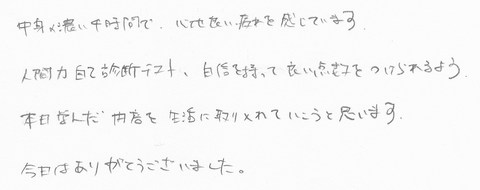 中身の濃い4時間で、心地良い疲れを感じています。
人間力自己診断テスト、自信を持って良い点数をつけられるよう、
本日学んだ内容を生活に取り入れていこうと思います。
今日はありがとうございました。